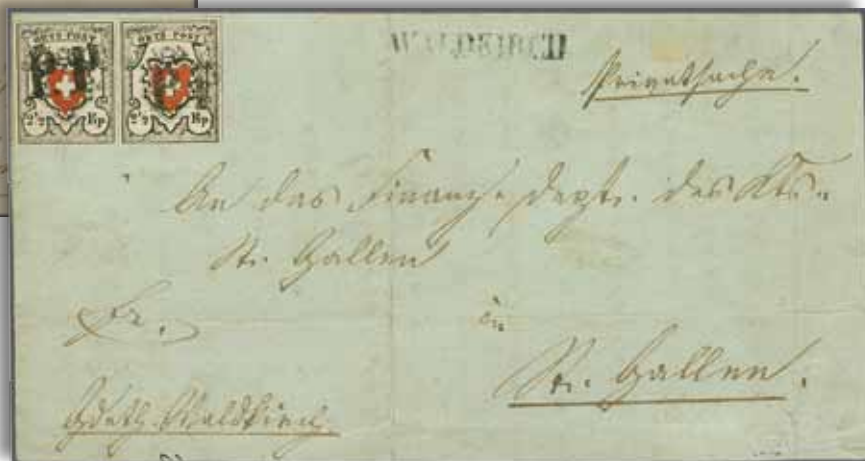 ORTS POST ORTS POST
P.P. P.P.
2½ Rp 2½ Rp
WALDKIRCH
Privatsache.
An das Finanz-Deptr. des Kts.
St. Gallen
Fr.
in
St. Gallen.
Waldkirch